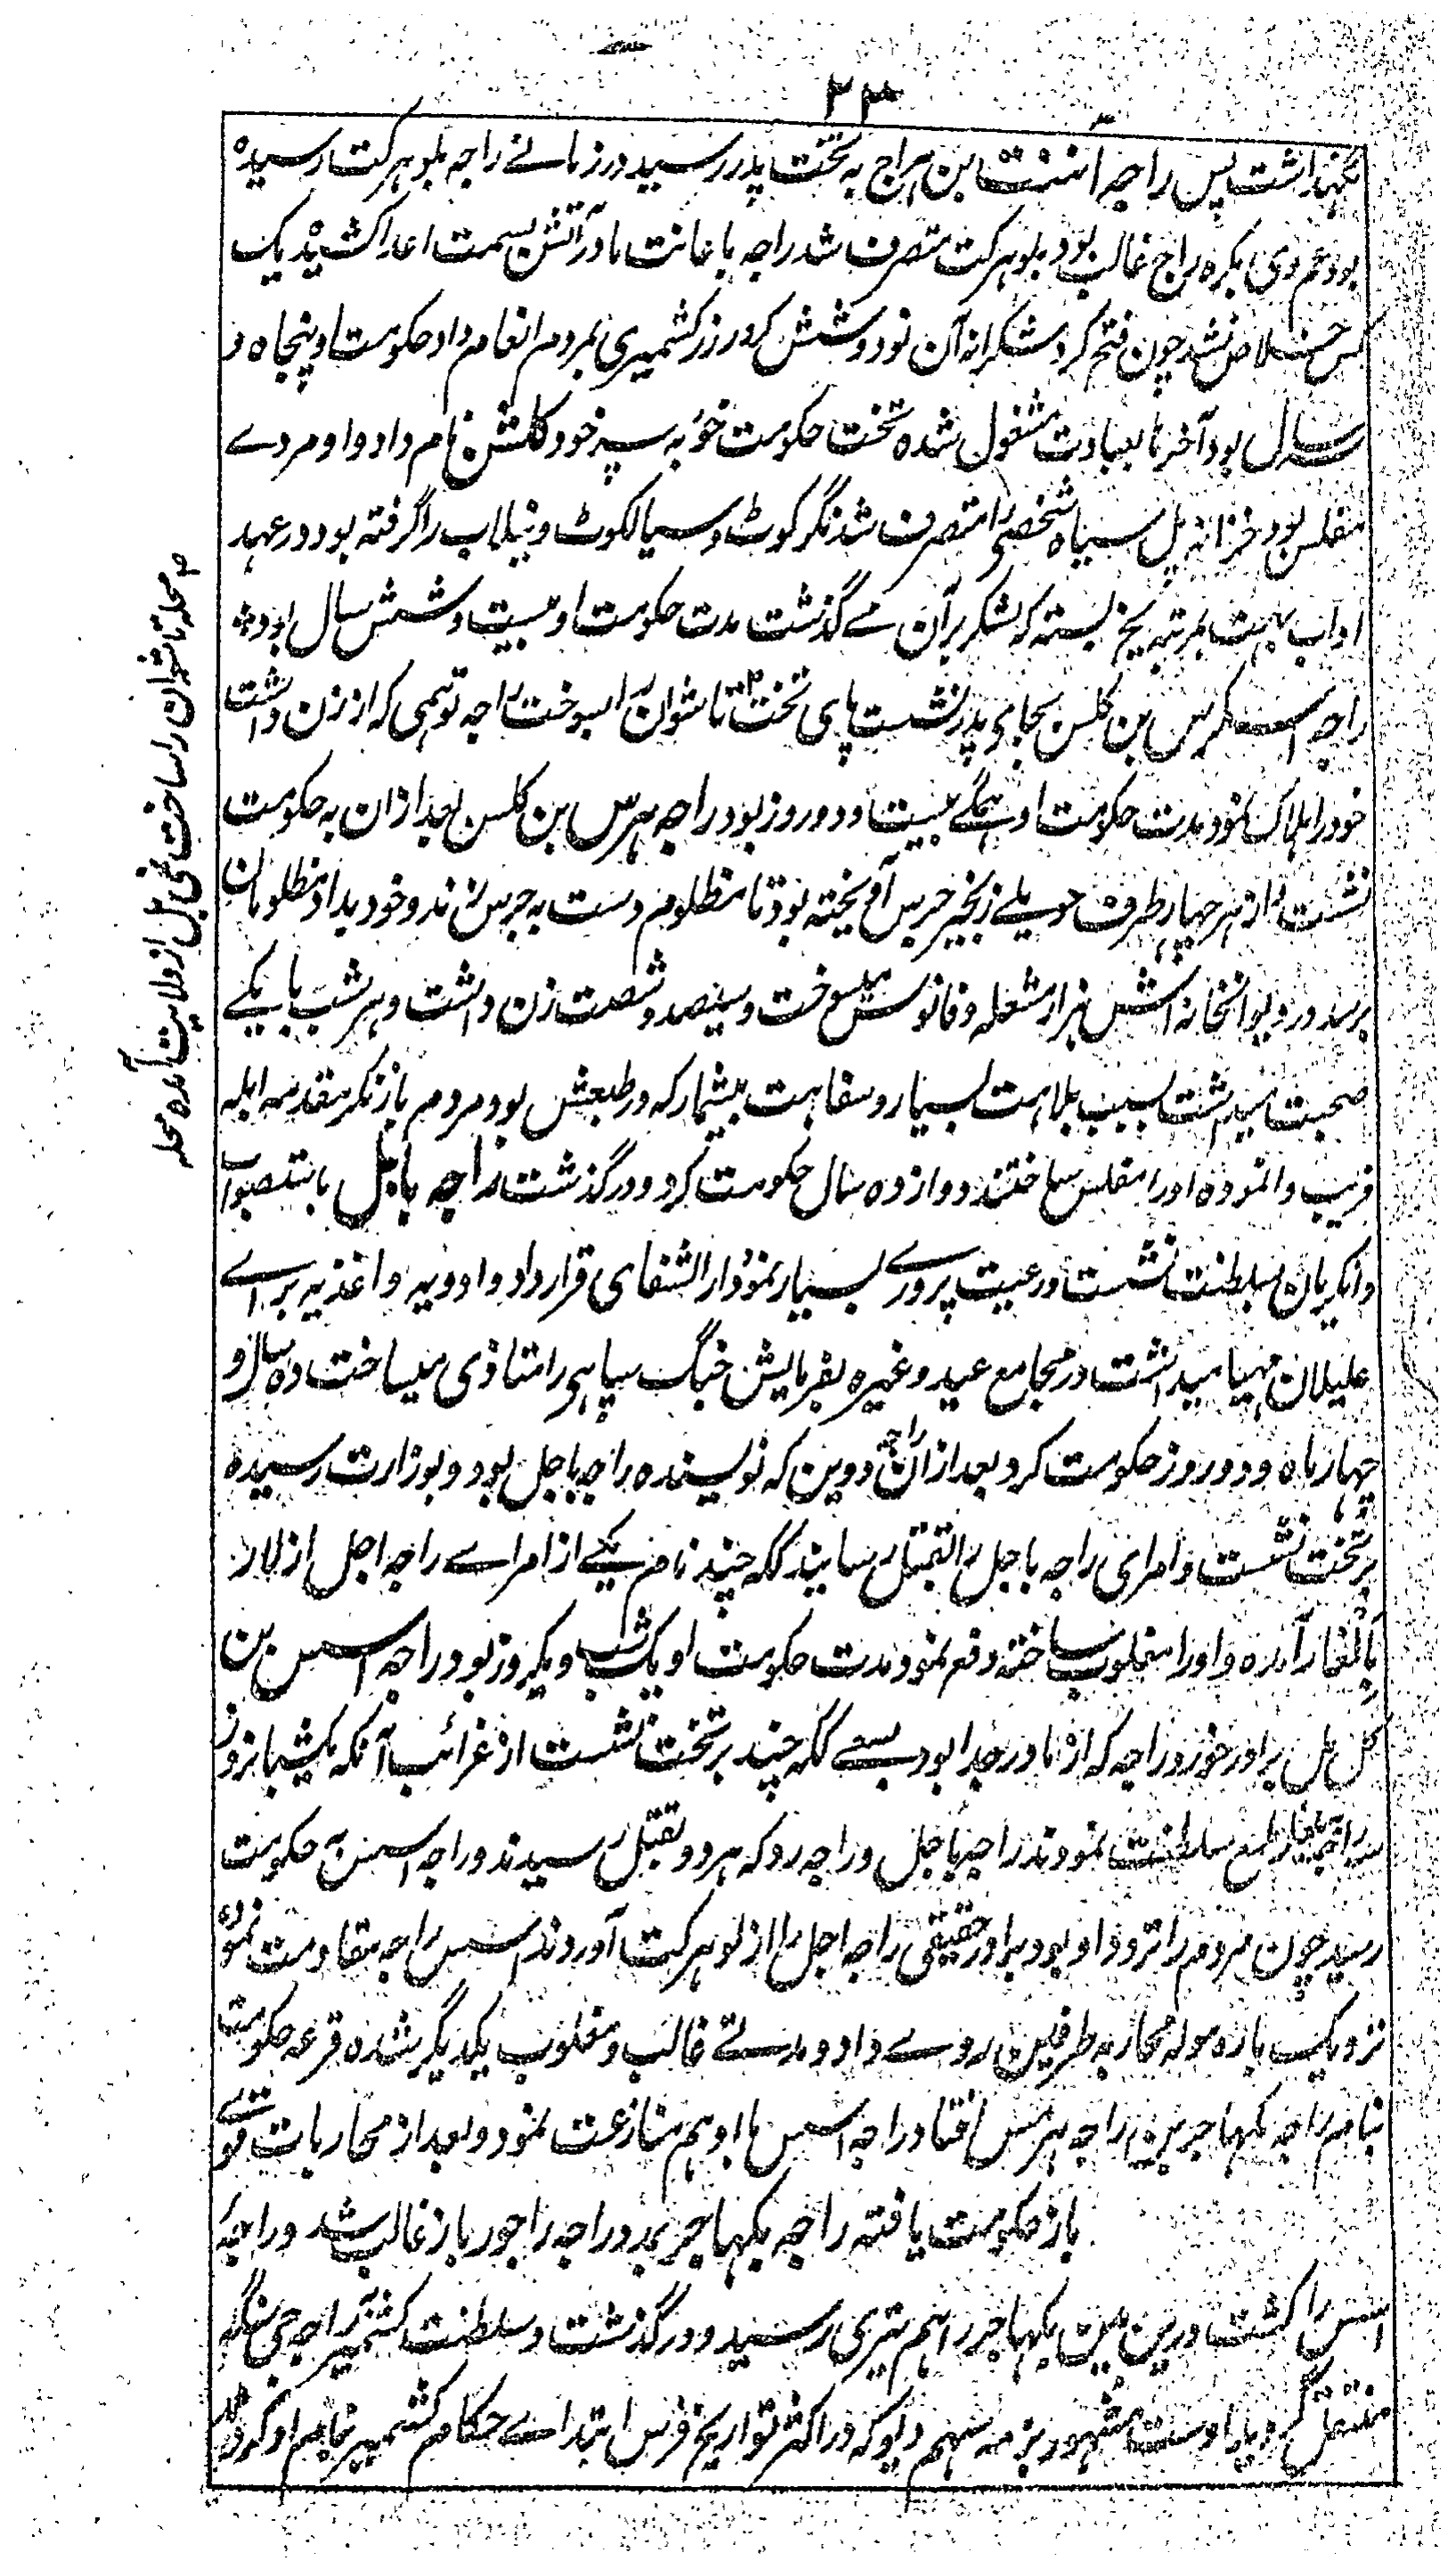 ۲۳
نگهداشت پس راجه اننت بن هراج به تخت پدر رسید در زمانے راجه بلوهرکت رسیده
بود عم وی بکره راج غالب بود بلوهرکت متصرف شد راجه باعانت مادر آتش بسمت اعدا کشید یک
کس خلاص نشد چون فتح کرد شکرانه آن نود و شش کرور زر کشمیری بمردم انعام داد حکومت او پنجاه و
سه سال بود آخرها بعبادت مشغول شده تخت حکومت خود به پسر خود کلش نام داد و او مردے
مفلس بود خزانه پل سیاه شخصی را متصرف شد نگرکوٹ و سیالکوٹ و نیلاب را گرفته بود در عهد
او آب بهت بمرتبه یخ بسته که لشکر بر آن مے گذشت مدت حکومت او بیست و شش سال بود
راجه اسکرس بن کلس بجای پدر نشست پای تخت تاشوان را بسوخت راجه توهمی که از زن داشت
خود را هلاک نمود مدت حکومت او همگے بیست و دو روز بود راجه هرس بن کلس بعد از ان به حکومت
نشست از هر چهار طرف حویلے زنجیر جرس آویخته بود تا مظلوم دست به جرس زند و خود بداد مظلومان
برسد در دیوانخانه اش هزار مشعله و فانوس میسوخت و سیصد و شصت زن داشت و هر شب با یکے
صحبت میداشت بسبب بلاهت بسیار و سفاهت بیشمار که در طبعش بود مردم بازنگر مقدمه ابله
فریب وانموده او را مفلس ساختند دوازده سال حکومت کرد و درگذشت راجه باجل باستصواب
دانکریان بسلطنت نشست و رعیت پرورے بسیار نمود دار الشفای قرار داد و ادویه و اغذیه براے
علیلان مهیا میداشت در مجامع عید و غیره بفرمایش جنگ سپاهی را متاذی میساخت ده سال و
چهار ماه و دو روز حکومت کرد بعد از آن راجه دوین که نویسنده راجه باجل بود و بوزارت رسیده
بر تخت نشست و امرای راجه باجل را بقتل رسانید ککه چند نام یکے از امراے راجه اجل از لار
بایلغار آمده و او را مغلوب ساخته دفع نمود مدت حکومت او یک شب و یکروز بود راجه اسس بن
کل مل برادر خورد راجه که از مادر جدا بود بسعے ککه چند بر تخت نشست از غرائب آنکه یکشبانروز
سه راجه طمع سلطنت نمودند راجه باجل و راجه رد که هر دو بقتل رسیدند و راجه اسس به حکومت
رسید چون مردم را تردد او بود برادر حقیقی راجه اجل را از لوهرکت آوردند اسس راجه مقاومت نموده
نزدیک باره موله محاربه طرفین روے داد و مدتے غالب و مغلوب یکدیگر شده قرعه حکومت
بنام راجه بکهاجر نبیره راجه هرس افتاد راجه اسس با او هم منازعت نمود و بعد از محاربات قوی
باز حکومت یافته راجه بکهاجر بمدد راجه راجور باز غالب شد و راجه
اسس را کشت درین بین بکهاجر را هم تیری رسید و درگذشت و سلطنت کشمیر به راجه جی سنگه
منتقل گردید مشهور بزمه سهم دیو که در اکثر تواریخ فرس ابتداے حکام کشمیر بنام او کرده
محله تاشوان را ساخت از ولایت آمده محله